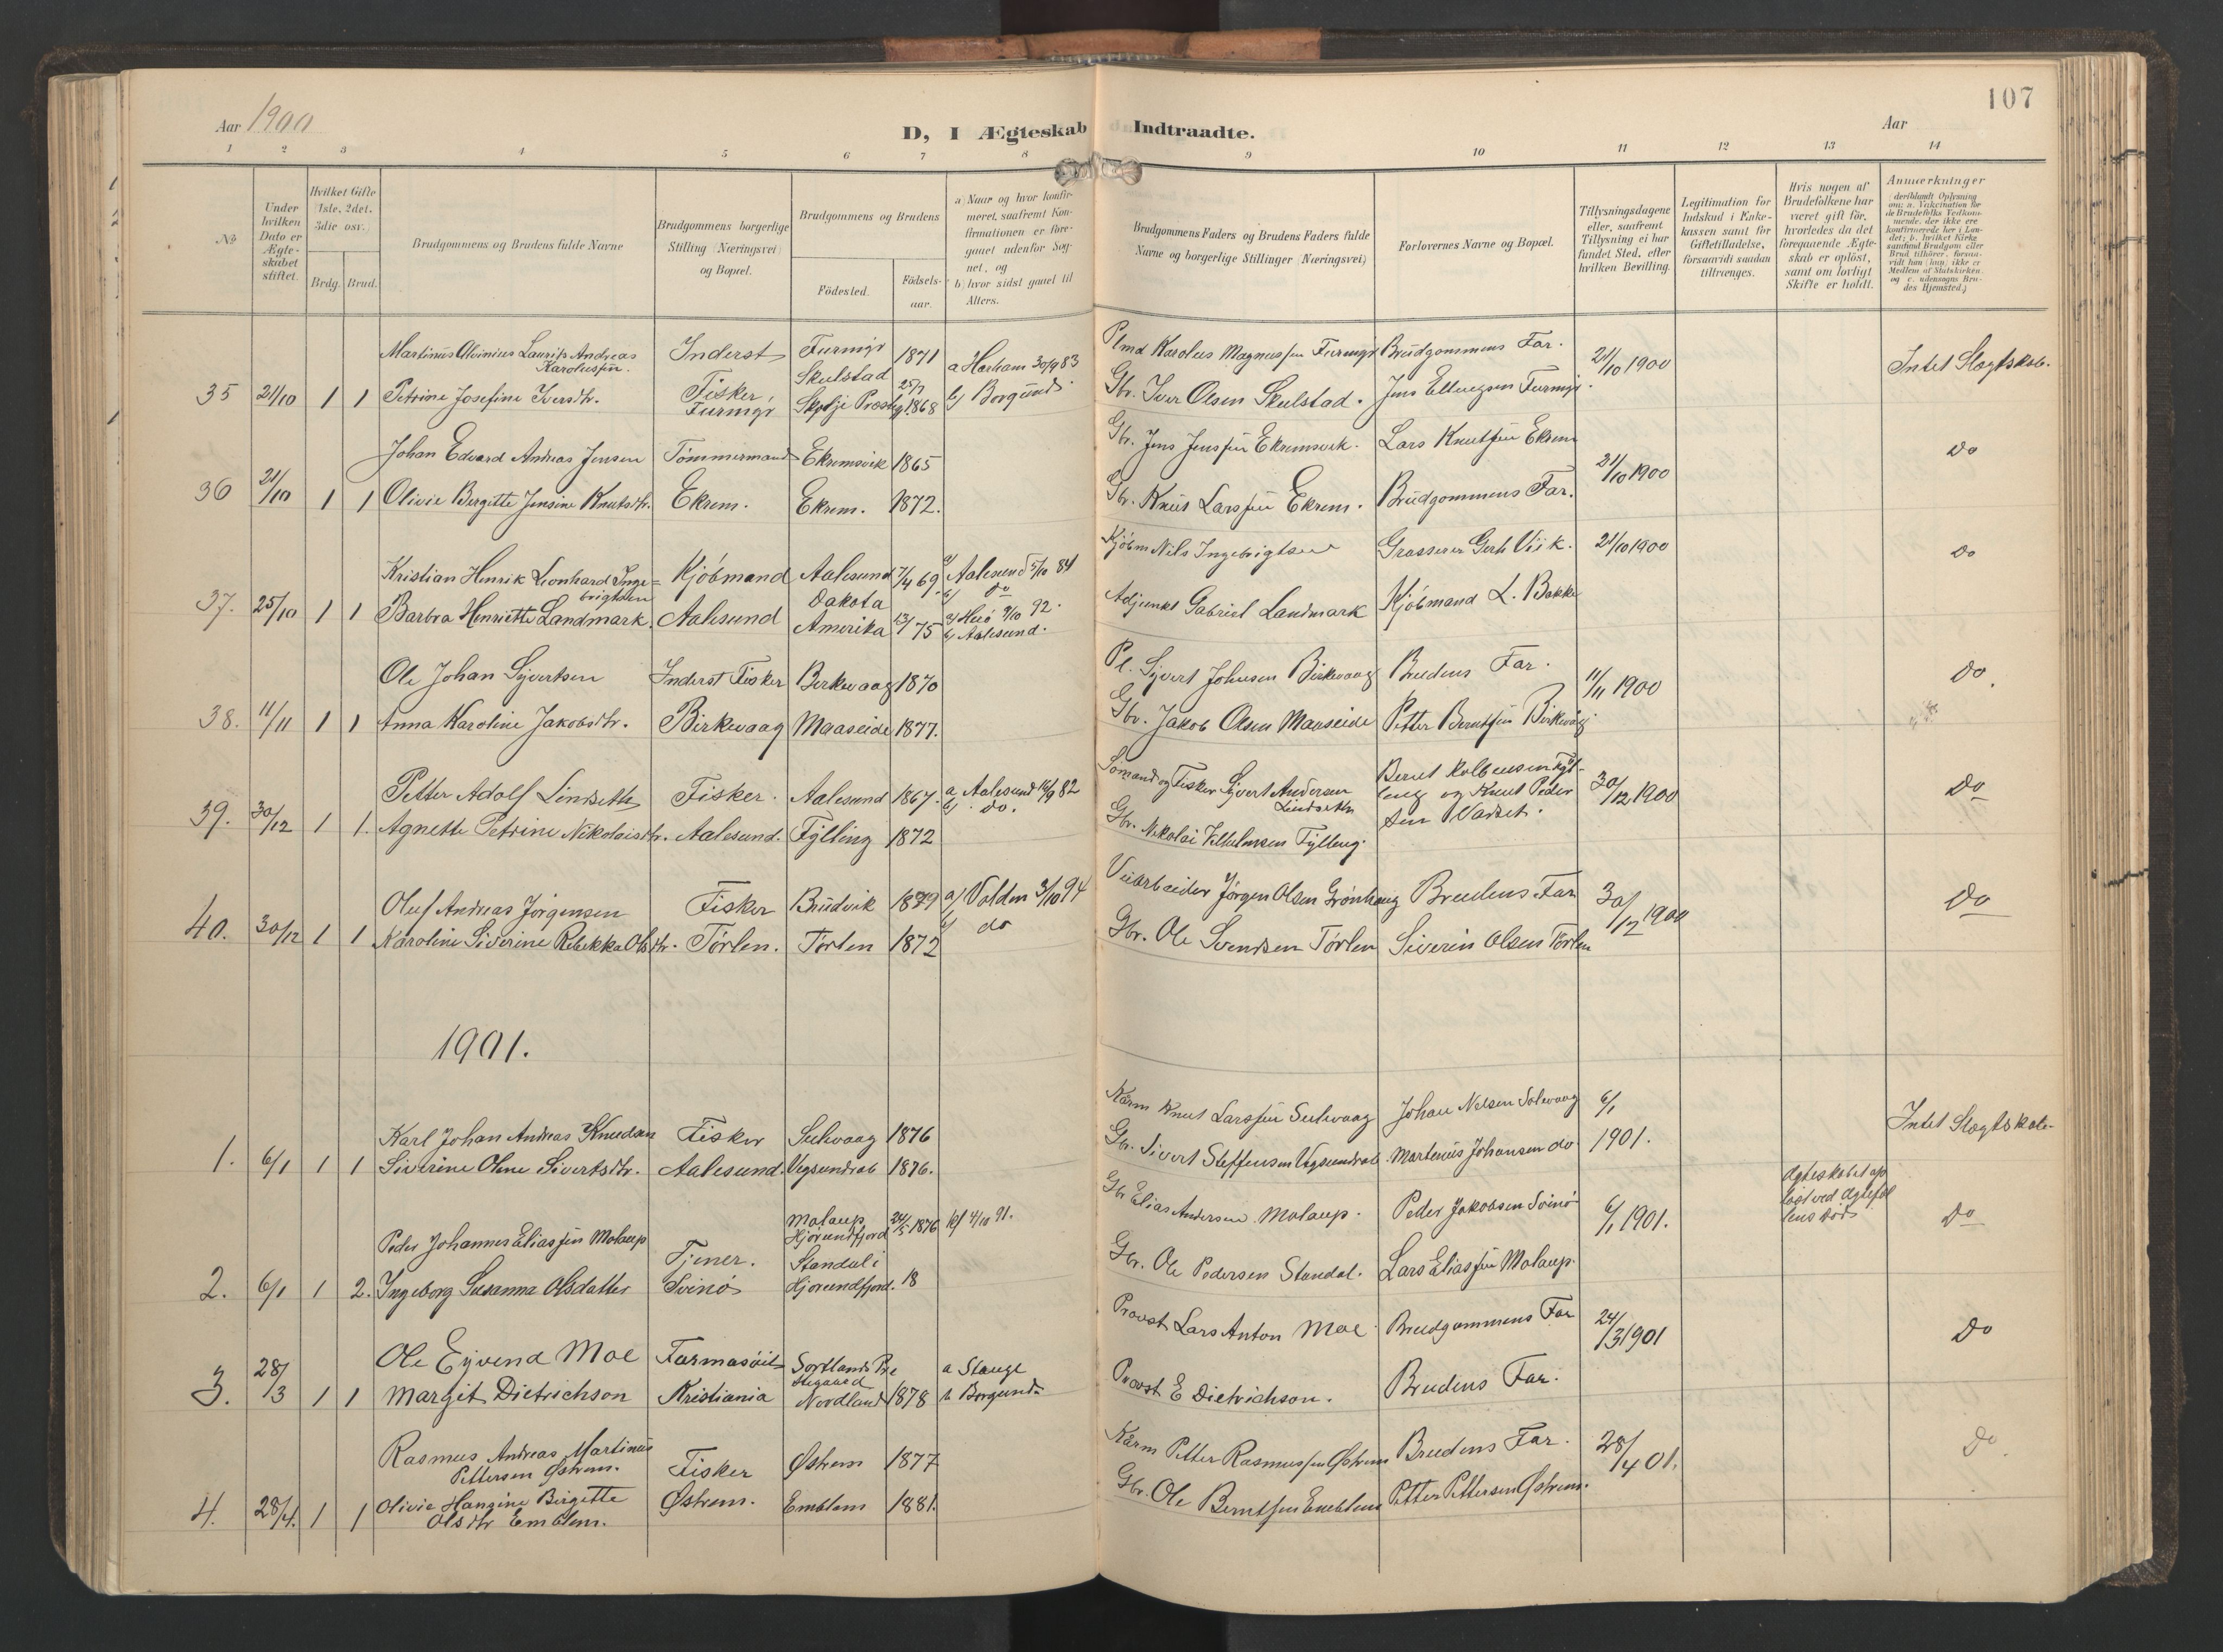 107
Aar 1900
D, I Ægteskab Indtraadte.
Aar
1 2 3 4 5 6 7 8 9 10 11 12 13 14
No
Under hvilken Dato er Ægteskabet stiftet.
Hvilket Gifte (1ste, 2det, 3die osv.)
Brdg. Brud.
Brudgommens og Brudens fulde Navne
Brudgommens borgerlige Stilling (Næringsvei) og Bopæl.
Brudgommens og Brudens
Födested.
Födsels-aar.
a) Naar og hvor konfirmeret, saafremt Konfirmationen er foregaaet udenfor Sognet, og
b) hvor sidst gaaet til Alters.
Brudgommens Faders og Brudens Faders fulde Navne og borgerlige Stillinger (Næringsvei)
Forlovernes Navne og Bopæl.
Tillysningsdagene eller, saafremt Tillysning ei har fundet Sted, efter hvilken Bevilling.
Legitimation for Indskud i Enkekassen samt for Giftetilladelse, forsaavidt saadan tiltrænges.
Hvis nogen af Brudefolkene har været gift för, hvorledes da det foregaaende Ægteskab er oplöst, samt om lovligt Skifte er holdt.
Anmærkninger
(deriblandt Oplysning om: a. Vakcination for de Brudefolks Vedkommende, der ikke ere konfirmerede her i Landet; b. hvilket Kirkesamfund Brudgom eller Brud tilhörer, forsaavidt han (hun) ikke er Medlem af Statskirken, og c. udensogns Brudes Hjemsted.)
Martinus Alvinius Laurits Andreas Karolussen. Inderst Furmyr 1871 a Harham 30/9 83 Plmd Karolus Magnussen Furmyr Brudgommens Far. 21/10 1900 Intet Slægtskab.
35 21/10 1 1 Petrine Josefine Iversdtr. Fisker Furmyr Skulstad Skodje Præstg 25/7 1868 b) Borgund Gbr. Iver Olsen Skulstad. Jens Ellingsen Furmyr.
Johan Edvard Andreas Jensen Tömmermand Ekremsvik 1865 Gbr. Jens Jenssen Ekremsvik. Lars Knutsen Ekrem 21/10 1900 do
36 21/10 1 1 Olivie Bergitte Jensine Knutsdtr. Ekrem. Ekrem. 1872. Gbr. Knut Larssen Ekrem. Brudgommens Far.
Kristian Henrik Leonhard Ingebrigtsen Kjöbmand Aalesund 7/4 69. a) Aalesund 5/10 84 b) do Kjöbm Nils Ingebrigtsen Grosserer Gerh Viik. 21/10 1900 do
37. 25/10 1 1 Barbra Henriette Landmark. Aalesund Dakota Amerika 13/ 75 a) Herö 9/10 92. b) Aalesund. Adjunkt Gabriel Landmark Kjöbmand L. Bakke
Ole Johan Syvertsen Inderst Fisker Birkevaag 1870 Pl. Syvert Johnsen Birkevaag Brudens Far. 11/11 1900 do.
38. 11/11 1 1 Anna Karoline Jakobsdtr. Birkevaag Maaseide 1877. Gbr. Jakob Olsen Maaseide Petter Berntsen Birkevaag
Petter Adolf Lindseth Fisker. Aalesund 1867. a Aalesund 10/9 82 b) do. Sömand og Fisker Syvert Andersen Lindseth Bernt Kolbensen Fylling og Knut Pedersen Varset. 30/12 1900 do
39. 30/12 1 1. Agnethe Petrine Nikolaisdtr. Aalesund. Fylling 1872 Gbr. Nikolai Vilhelmsen Fylling.
Oluf Andreas Jørgensen Fisker Brudvik 1879 a) Volden 3/10 94 b) do Veiarbeider Jørgen Olsen Grønhaug Brudens Far 30/12 1900 do
40. 30/12 1 1 Karoline Siverine Rebekka Olsdtr. Tørlen. Tørlen 1872 Gbr. Ole Svendsen Tørlen Siverin Olsen Tørlen
1901.
Karl Johan Andreas Knudsen Fisker Sulevaag 1876 Kårm Knut Larssen Sulevaag Johan Nelsen Solevaag 6/1 1901. Intet Slægtskab.
1. 6/1 1 1 Siverine Oline Sivertsdtr. Aalesund. Vegsundrab 1876. Gbr. Sivert Steffensen Vegsundrab. Martenius Johansen do
Peder Johannes Eliassen Molaup Tjener. Molaup Hjørundfjord 24/5 1876 kf 4/10 91. Gbr Elias Andersen Molaup. Peder Jakobsen Svinö 6/1 1901. Ægteskabet opløst ved Ægtefællens Død do
2. 6/1 1 2. Ingeborg Susanna Olsdatter Svinö Standal i Hjørundfjord. 18 Gbr. Ole Pedersen Standal. Lars Eliassen Molaup.
Ole Eyvend Moe Farmasöit Sortlands Præstegaard a Stange Provst Lars Anton Moe. Brudgommens Far 24/3 1901 do
3. 28/3 1 1 Margit Dietrichson Kristiania Nordland 1878 b Borgund Provst E Dietrichson. Brudens Far.
Rasmus Andreas Martinus Pettersen Østrem. Fisker Østrem 1877 Kårm Petter Rasmussen Østrem Brudens Far. 28/4 01. do.
4. 28/4. 1 1 Olivie Hansine Birgitte Olsdtr Emblem. Østrem. Emblem 1881. Gbr. Ole Berntsen Emblem Petter Pettersen Østrem.